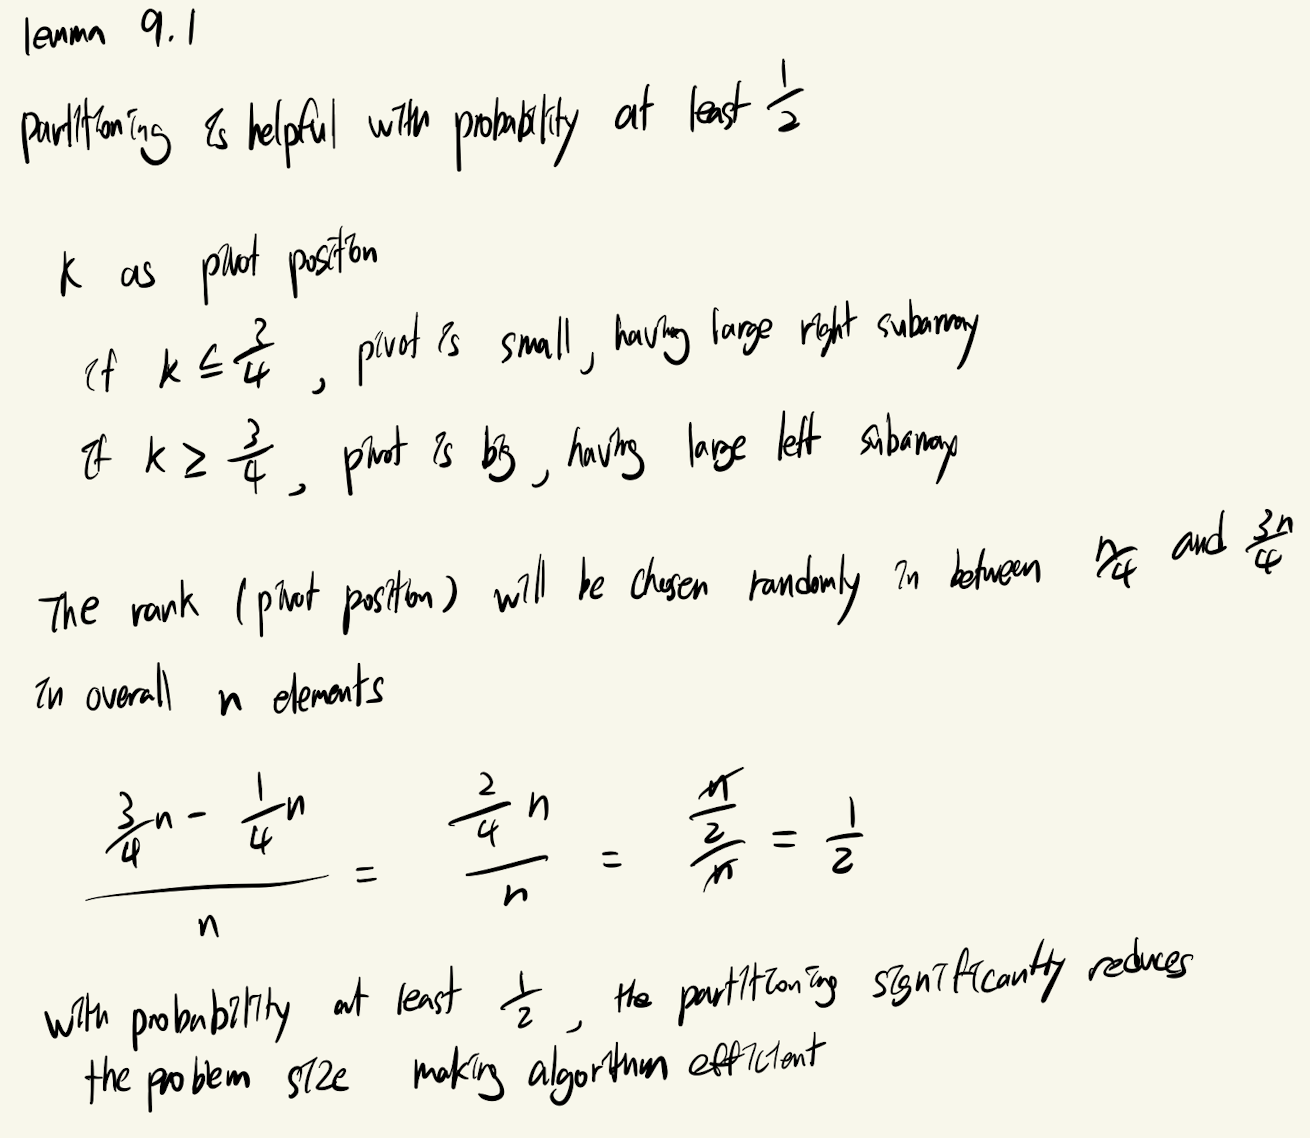 lemma 9.1
partitioning is helpful with probability at least 1/2
k as pivot position
if k ≤ 3/4, pivot is small, having large right subarray
if k ≥ 3/4, pivot is big, having large left subarray
The rank (pivot position) will be chosen randomly in between n/4 and 3n/4
in overall n elements
(3/4 n - 1/4 n)/n = (2/4 n)/n = (n/2)/n = 1/2
with probability at least 1/2, the partitioning significantly reduces
the problem size making algorithm efficient